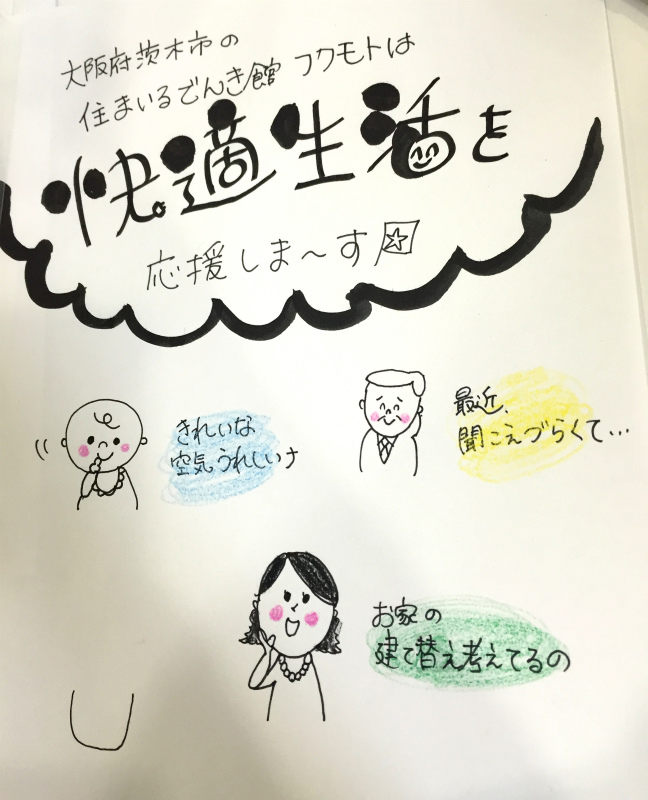 大阪府茨木市の
住まいるでんき館 フクモトは
快適生活を
応援しま〜す
きれいな
空気うれしいナ
最近、
聞こえづらくて…
お家の
建て替え考えてるの